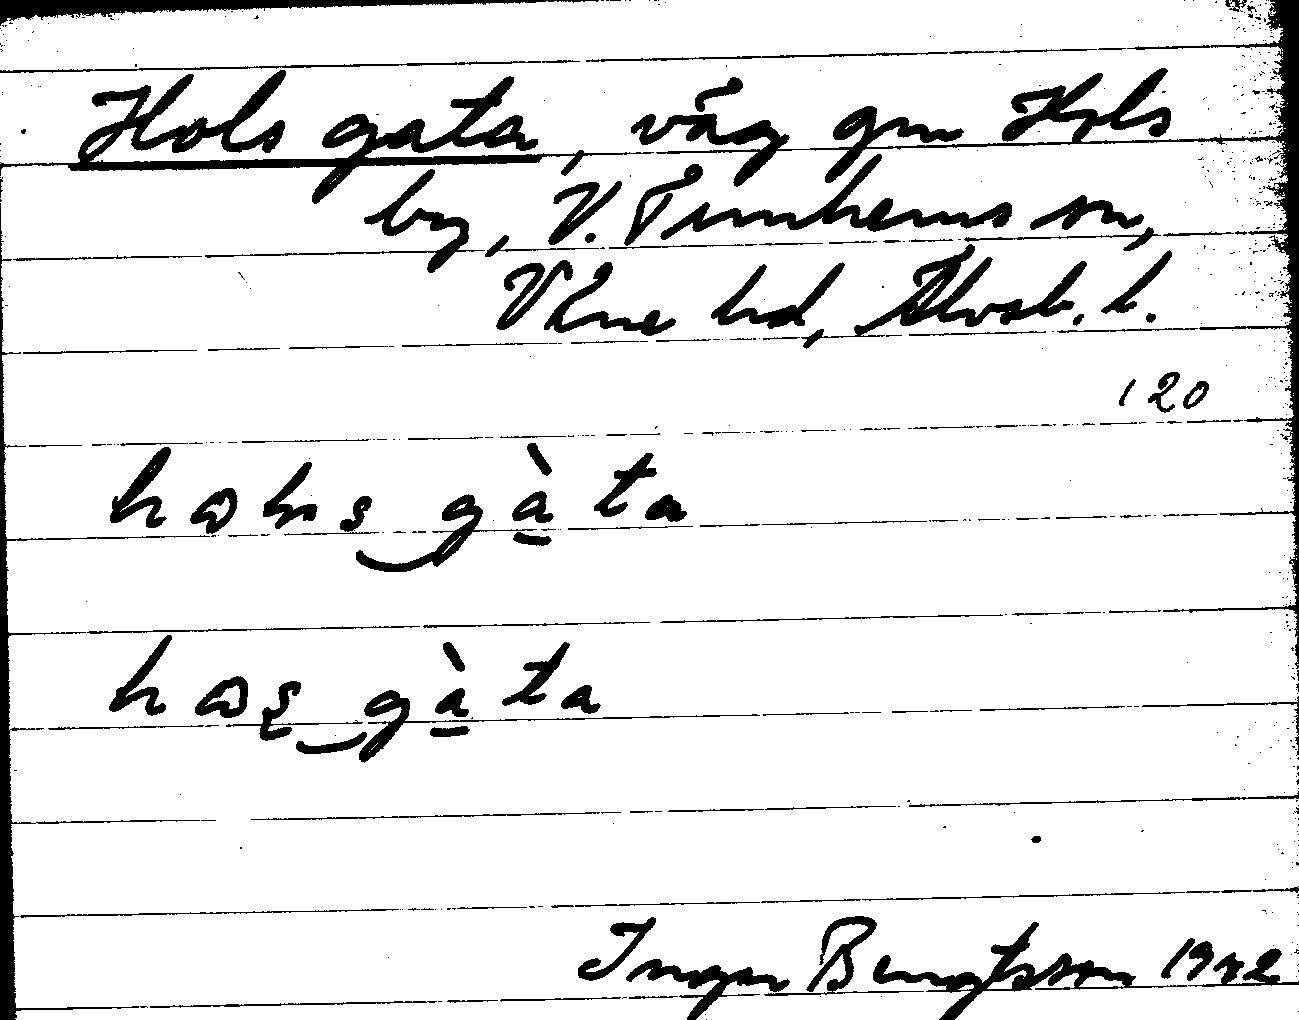 Hols gata, väg gm Hols
by, V. Tunhems sn,
Väne hd, Älvsb. l.
120
gàta
gàta
Inger Bengtsson 1942